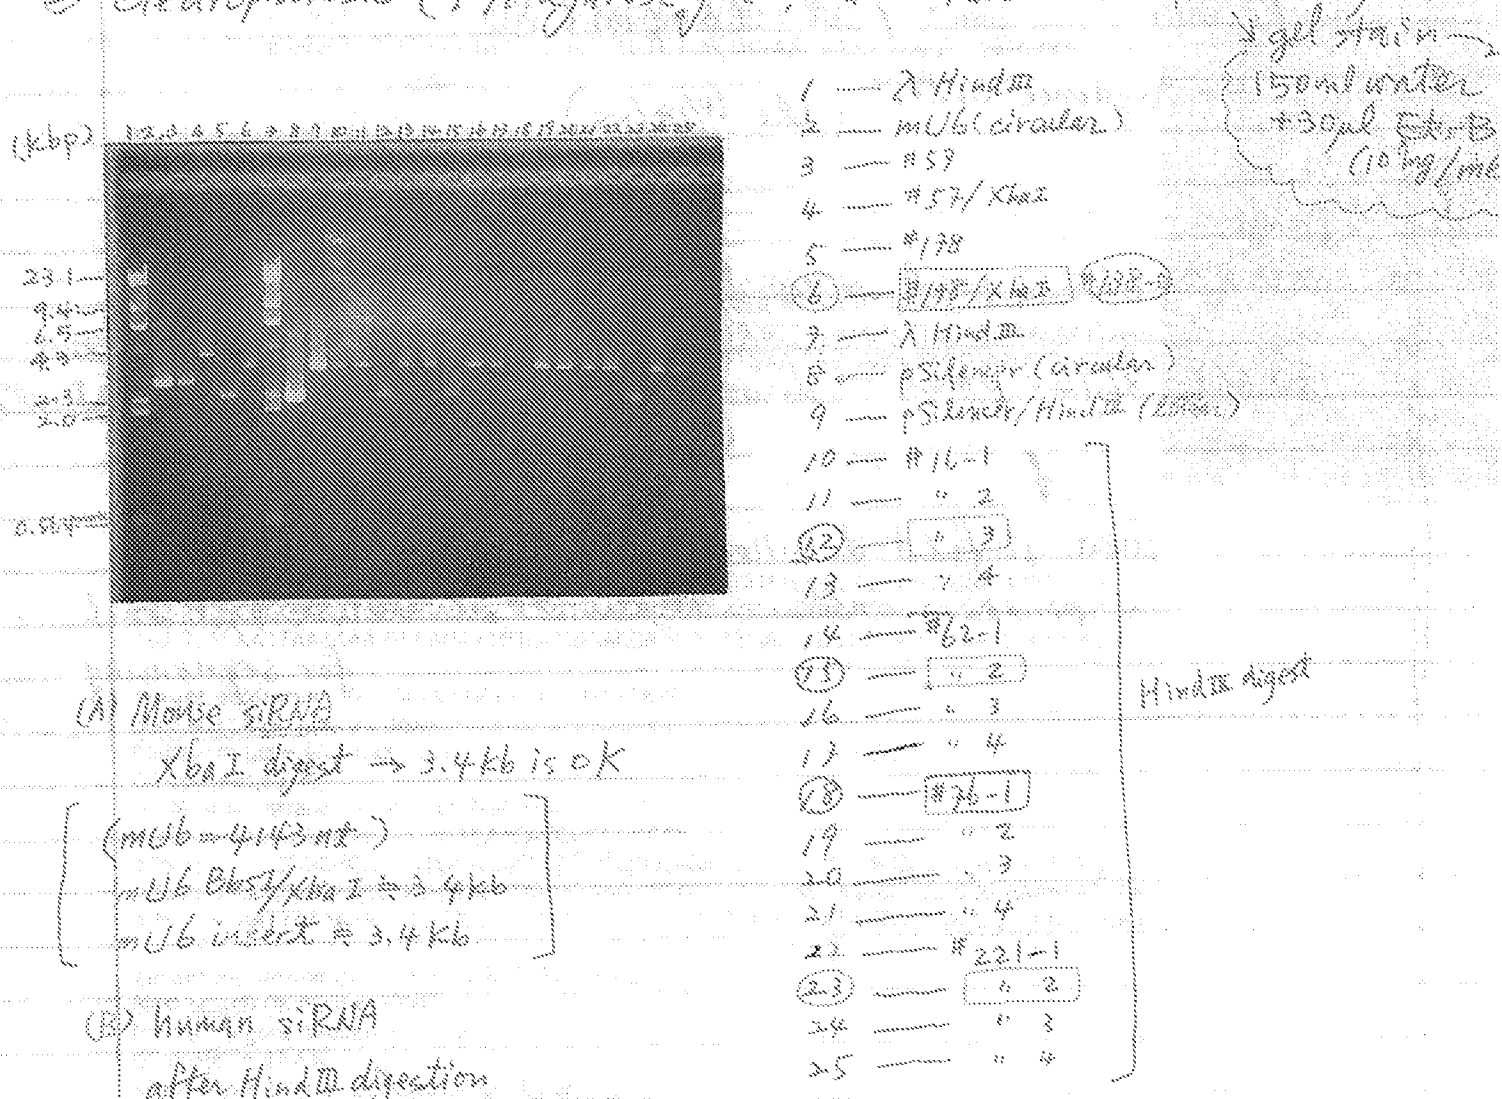 gel stain
150ml water
+30μl EtBr
(kbp)
1 2 3 4 5 6 7 8 9 10 11 12 13 14 15 16 17 18 19 20 21 22 23 24 25
23.1
9.4
6.5
2.0
0.564
1 — λ HindIII
2 — mU6 (circular)
3 — #57
4 — #57/XbaI
5 — #198
6 — #198/XbaI
7 — λ HindIII
8 — pSilencer (circular)
9 — pSilencer/HindIII
10 — #16-1
11 — " 2
12 — " 3
13 — " 4
14 — #62-1
15 — " 2
16 — " 3
17 — " 4
18 — #36-1
19 — " 2
20 — " 3
21 — " 4
22 — #221-1
23 — " 2
24 — " 3
25 — " 4
HindIII digest
(A) Mouse siRNA
XbaI digest → 3.4kb is OK
(mU6 = 4143 nt)
mU6 BbsI/XbaI ≒ 3.4kb
mU6 insert ≒ 3.4kb
(B) human siRNA
after HindIII digestion